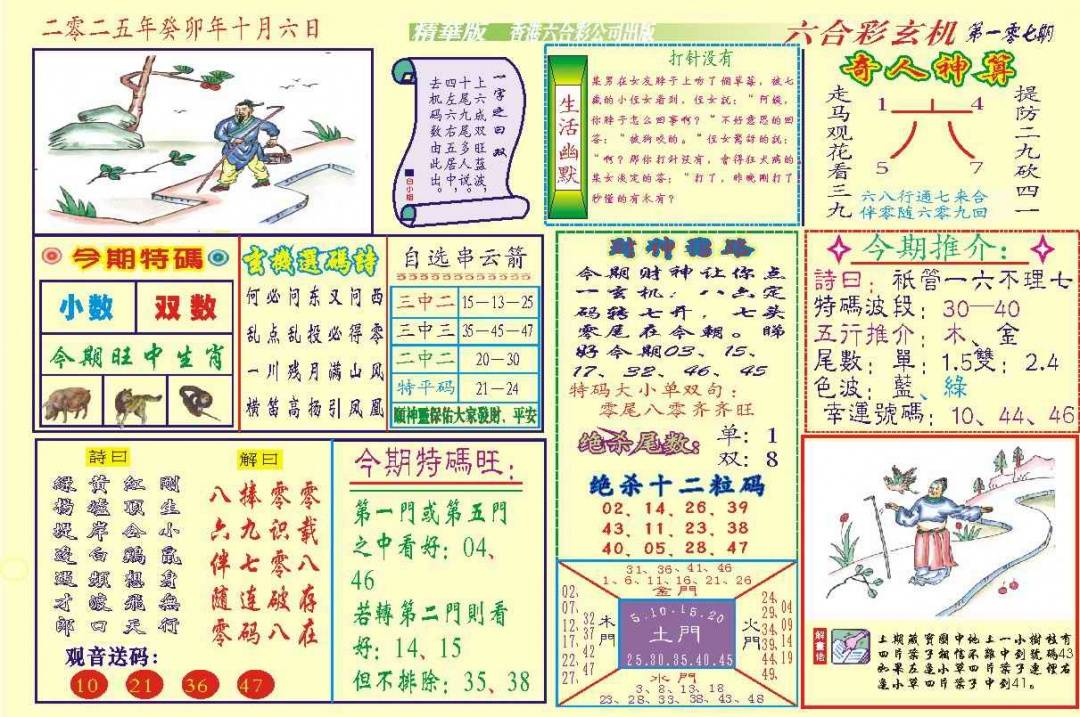 二零二五年癸卯年十月六日
精華版 香港六合彩公司出版
六合彩玄机 第一零七期
一字之曰 双
上六成双旺蓝波
十尾双五多说
四左九右居中
去机码数由此出
白小姐
生活幽默
打针没有
某男在女友脖子上吻了個草莓，被七
歲的小侄女看到，侄女說："阿姨，
你脖子怎么回事啊？"不好意思的回
答："被狗咬的。"侄女驚訝的說：
"啊？那你打針没有，會得狂犬病的
某女淡定的答："打了，昨晚剛打了
秒懂的有木有？
奇人神算
走马观花看三九
提防二九砍四一
1 4
六
5 7
六八行通七来合
伴零随六零九回
今期特碼
小数 双数
今期旺中生肖
玄機選碼詩
何必问东又问西
乱点乱投必得零
一川残月满山风
横笛高扬引凤凰
自选串云箭
三中二 15—13—25
三中三 35—45—47
二中二 20—30
特平码 21—24
顺神靈保佑大家發財、平安
財神
今期财神让你点
一玄机：八点定
码转七开，七头
零尾在今朝。睇
好今期03、15、
17、32、46、45
特码大小单双句：
零尾八零齐齐旺
绝杀尾数： 单：1
双：8
绝杀十二粒码
02、14、26、39
43、11、23、38
40、05、28、47
今期推介：
詩曰：祇管一六不理七
特碼波段：30—40
五行推介：木、金
尾數：單：1.5雙：2.4
色波：藍、綠
幸運號碼：10、44、46
詩曰
剛生小鼠身無行
红頂公鷄想飛天
黄爐岸白頻渡口
綠楊堤邊遇才郎
解曰
零零
八捧零载
六九识八
伴七零存
随连破在
零码八
观音送码：
10 21 36 47
今期特碼旺：
第一門或第五門
之中看好：04、
46
若轉第二門則看
好：14、15
但不排除：35、38
31、36、41、46
1、6、11、16、21、26
金門
02、07、12、17、22、27、
32、37、42、47
木門
5.10.15.20
土門
25.30.35.40.45
火門
24、29、34、39、44、49
04、09、14、19
水門
3、8、13、18
23、28、33、38、43、48
解畫佬
土期藏寶圖中地上一小樹枝有
四片葉子相信不難中到號碼43
如果左邊小草四片葉子連慳右
邊小草四片葉子中到41。